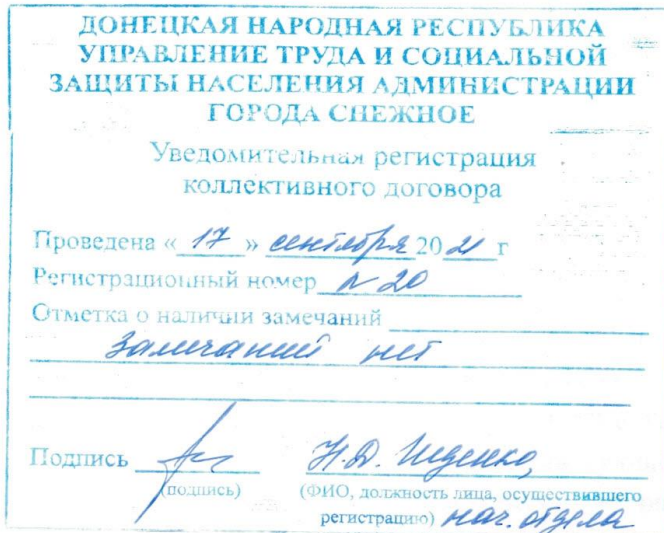 ДОНЕЦКАЯ НАРОДНАЯ РЕСПУБЛИКА
УПРАВЛЕНИЕ ТРУДА И СОЦИАЛЬНОЙ
ЗАЩИТЫ НАСЕЛЕНИЯ АДМИНИСТРАЦИИ
ГОРОДА СНЕЖНОЕ
Уведомительная регистрация
коллективного договора
Проведена « 17 » сентября 20 21 г
Регистрационный номер № 20
Отметка о наличии замечаний
Замечаний нет
Подпись Н.Д. Ищенко,
(подпись) (ФИО, должность лица, осуществившего
регистрацию) нач. отдела